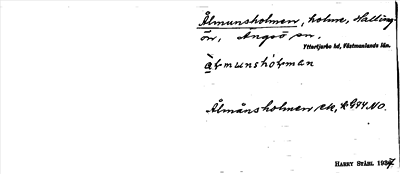 Ålmunsholmen, holme, Halling-
ön, Ängsö sn.
Yttertjurbo hd, Västmanlands län.
àlmunshòlman
Ålmånsholmen ek, kG94 NO.
HARRY STÅHL 1937.